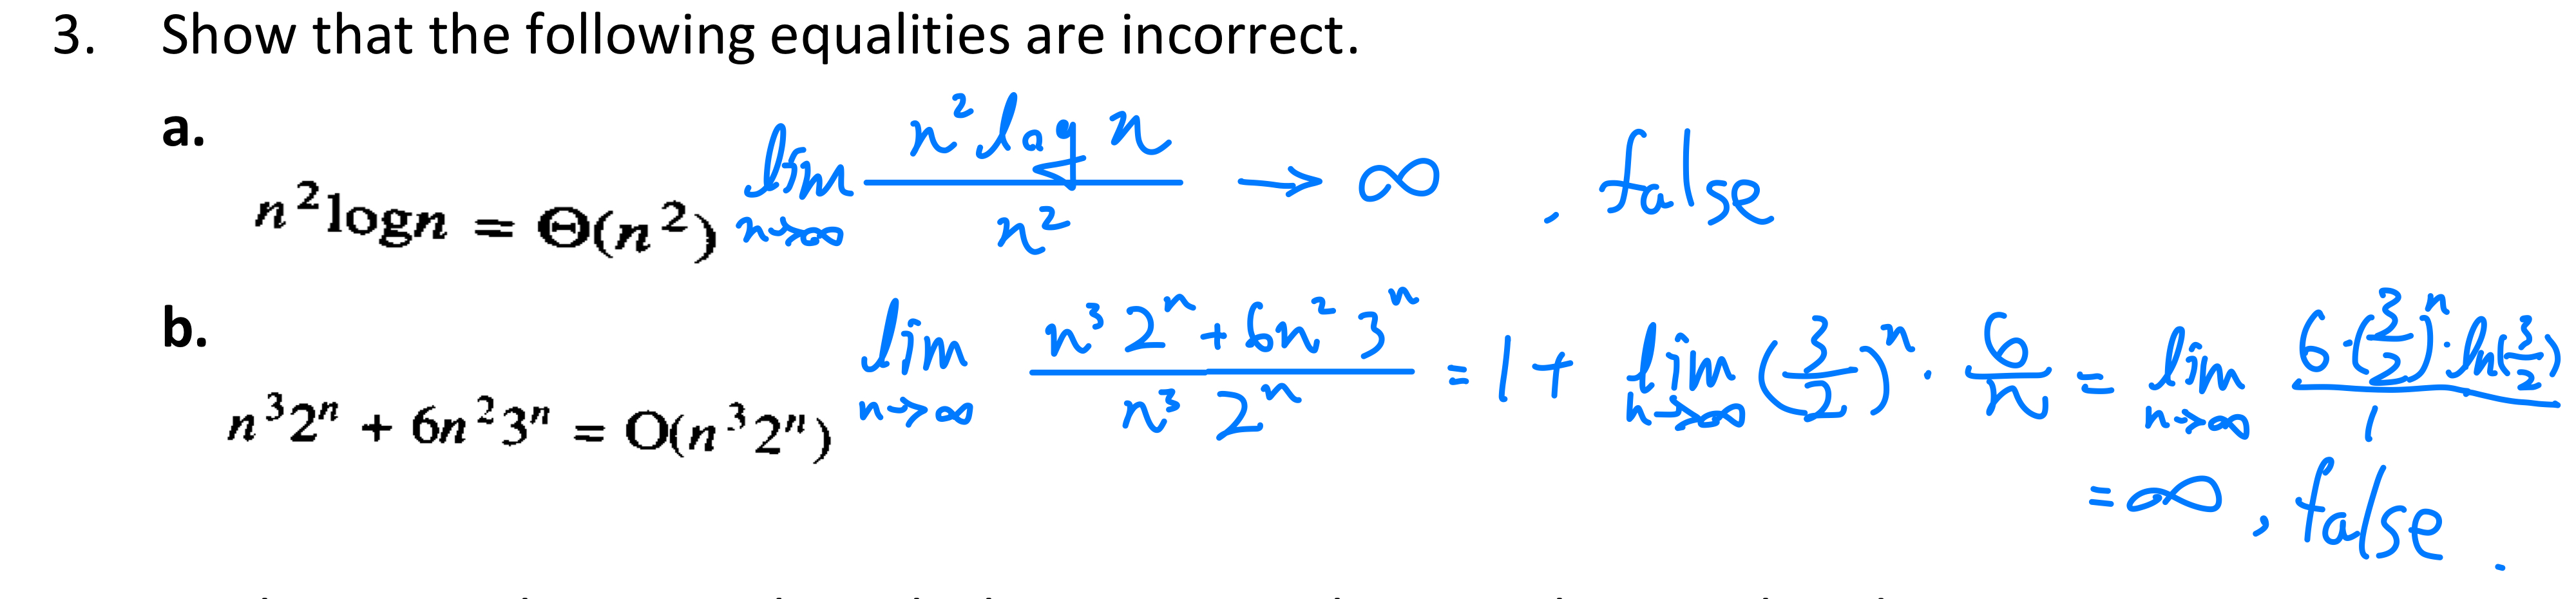 3. Show that the following equalities are incorrect.
a.
n²logn = Θ(n²) lim n→∞ n² log n / n² → ∞ , false
b.
n³2ⁿ + 6n²3ⁿ = O(n³2ⁿ) lim n→∞ (n³ 2ⁿ + 6n² 3ⁿ) / (n³ 2ⁿ) = 1 + lim n→∞ (3/2)ⁿ · 6/n = lim n→∞ 6·(3/2)ⁿ·ln(3/2) / 1
= ∞ , false .